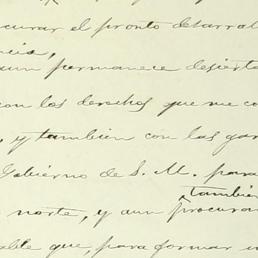 curar el pronto desarrol
ncia,
aun permanece desierto
con los derechos que me co
, y tambien con las gar
Gobierno de S. M. para
tambien
norte, y aun procurar
able que, para formar u